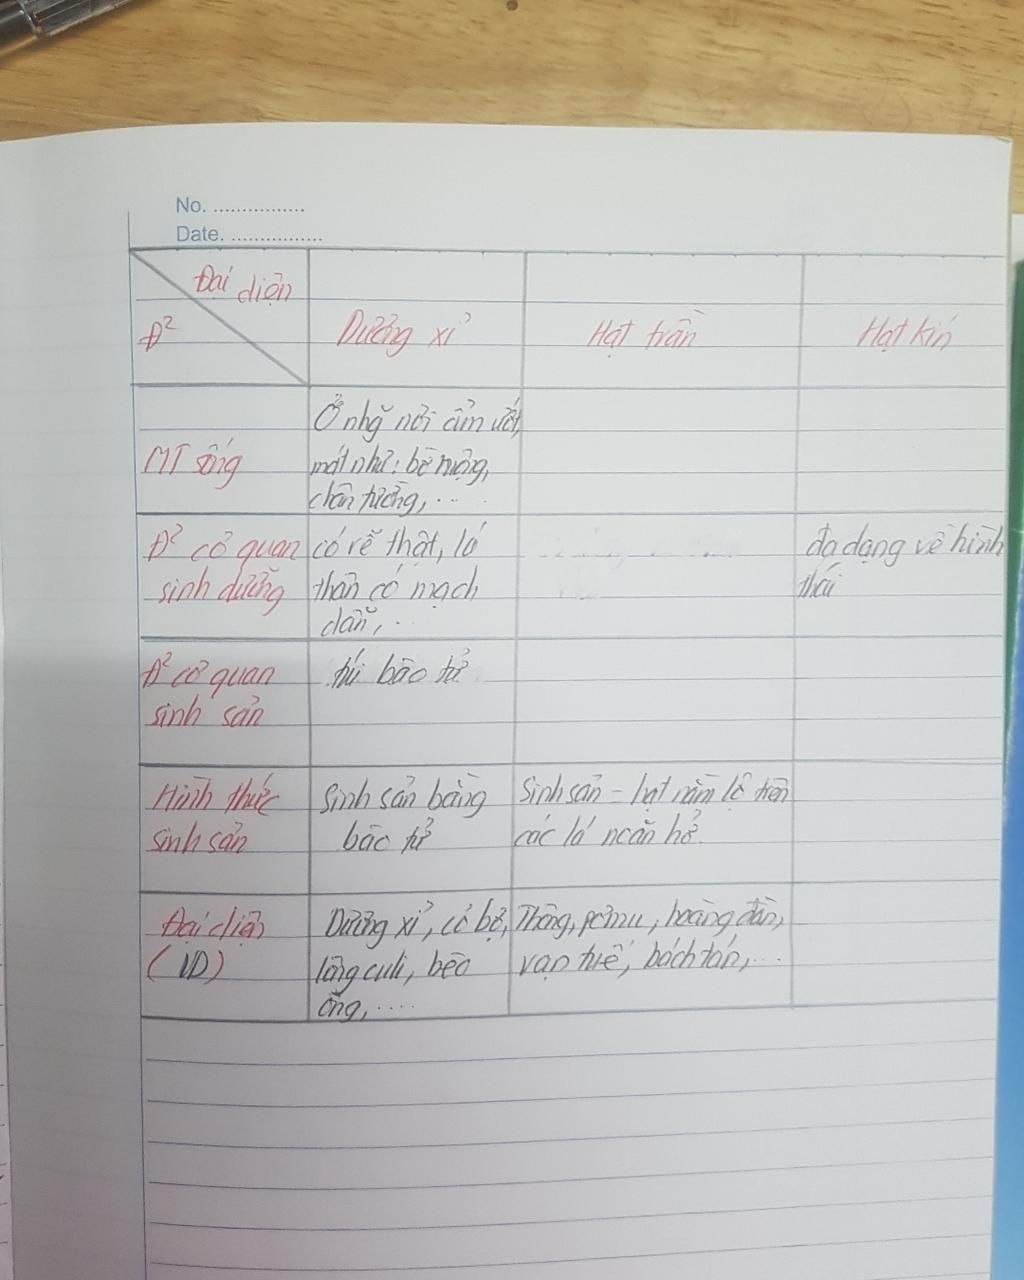 No. ...............
Date. ...............
Đại diện
Đ²
Dương xỉ
Hạt trần
Hạt kín
MT sống
Ở nhg nơi ẩm ướt,
mát như: bờ ruộng,
chân tường, ...
Đ² cơ quan
sinh dưỡng
có rễ thật, lá
thân có mạch
dẫn, ..
đa dạng về hình
thái
Đ² cơ quan
sinh sản
túi bào tử
Hình thức
sinh sản
Sinh sản bằng
bào tử
Sinh sản = hạt nằm lộ trên
các lá noãn hở.
Đại diện
(VD)
Dương xỉ, cỏ bợ,
lông culi, bèo
ong, ....
Thông, pơmu, hoàng đàn,
vạn tuế, bách tán, ...